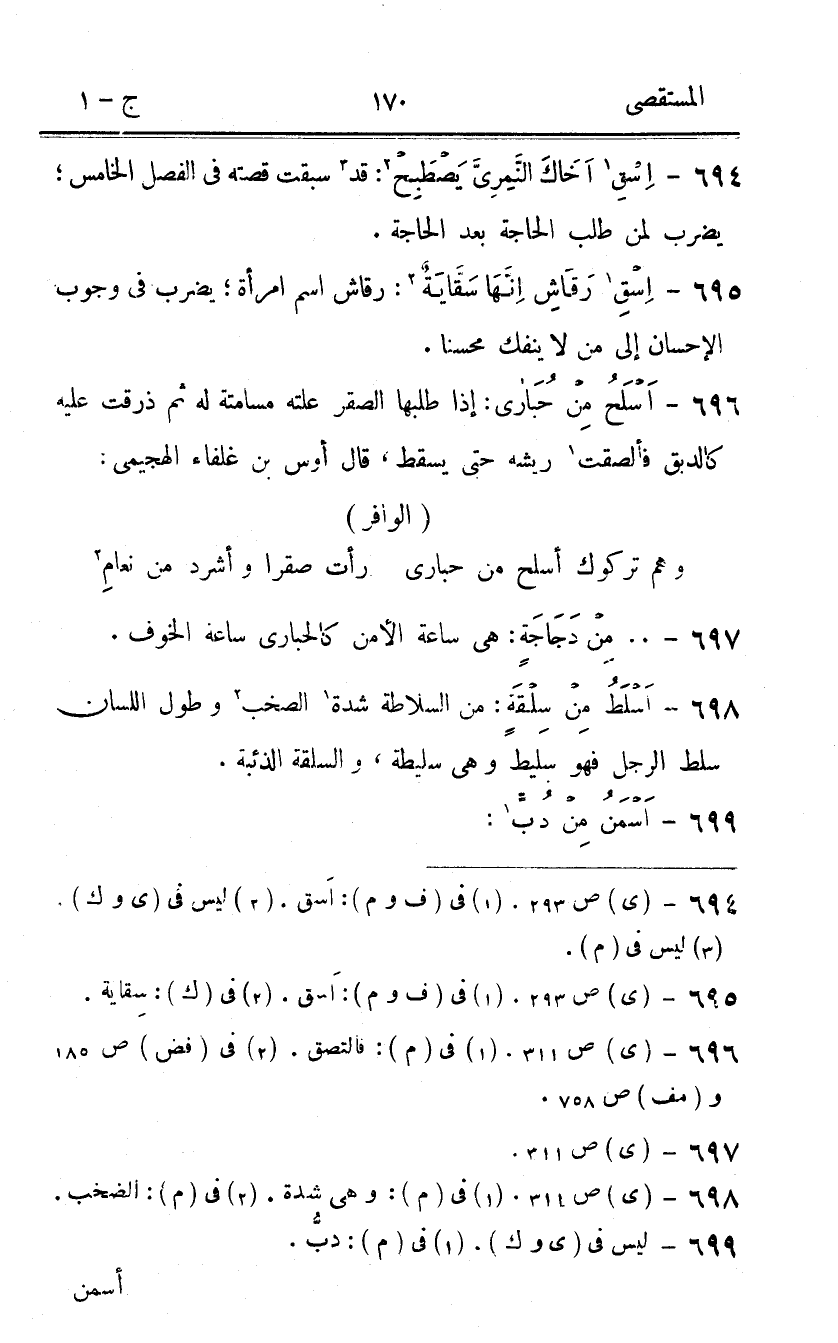 المستقصى ١٧٠ ج – ١
٦٩٤ – اِسْقِ١ اَخَاكَ النَّمِرِىَّ يَصْطَبِحْ٢: قد٣ سبقت قصته فى الفصل الخامس؛
يضرب لمن طلب الحاجة بعد الحاجة .
٦٩٥ – اِسْقِ١ رَقَاشِ اِنَّهَا سَقَّايَةٌ٢: رقاش اسم امرأة؛ يضرب فى وجوب
الإحسان إلى من لا ينفك محسنا .
٦٩٦ – اَسْلَحُ مِنْ حُبَارٰى: إذا طلبها الصقر علته مسامتة له ثم ذرقت عليه
كالدبق فألصقت١ ريشه حتى يسقط، قال أوس بن غلفاء الهجيمى:
( الوافر )
و هم تركوك أسلح من حبارى رأت صقرا و أشرد من نعامِ٢
٦٩٧ – .. مِنْ دَجَاجَةٍ: هى ساعة الأمن كالحبارى ساعة الخوف .
٦٩٨ – اَسْلَطُ مِنْ سِلْقَةٍ: من السلاطة شدة١ الصخب٢ و طول اللسان
سلط الرجل فهو سليط و هى سليطة، و السلقة الذئبة .
٦٩٩ – اَسْمَنُ مِنْ دُبٍّ١ :
٦٩٤ – (ى) ص ٢٩٣ . (١) فى (ف و م): اَسق . (٢) ليس فى (ى و ك) .
(٣) ليس فى (م) .
٦٩٥ – (ى) ص ٢٩٣ . (١) فى (ف و م): اَسق . (٢) فى (ك): سِقاية .
٦٩٦ – (ى) ص ٣١١ . (١) فى (م): فالتصق . (٢) فى (فض) ص ١٨٥
و (مف) ص ٧٥٨ .
٦٩٧ – (ى) ص ٣١١ .
٦٩٨ – (ى) ص ٣١٤ . (١) فى (م): و هى شدة . (٢) فى (م): الضخب .
٦٩٩ – ليس فى (ى و ك) . (١) فى (م): دبُّ .
أسمن